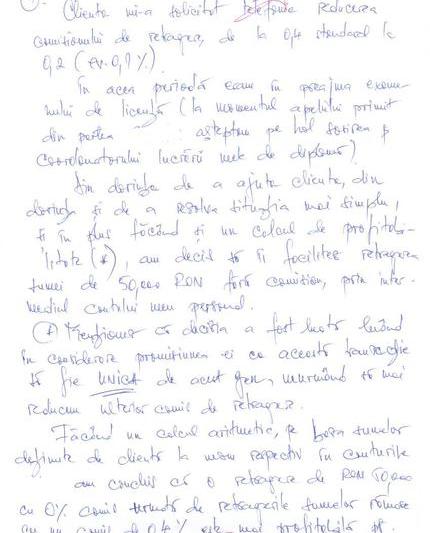 Clienta mi-a solicitat telefonic reducerea
comisionului de retragere, de la 0,4 standard la
0,2 (ev. 0,1%).
În acea perioadă eram în preajma exame-
nului de licență (la momentul apelului primit
din partea așteptam pe hol sosirea
coordonatorului lucrării mele de diplomă)
Din dorința de a ajuta clienta, din
dorința și de a rezolva situația mai simplu,
și în plus făcând și un calcul de profitabi-
litate (*), am decis să îi facilitez retragerea
sumei de 50,000 RON fără comision, prin inter-
mediul contului meu personal.
(*) Menționez că decizia a fost luată luând
în considerare promisiunea ei ca această tranzacție
să fie UNICĂ de acest gen, urmând să mai
reducem ulterior comis de retragere.
Făcând un calcul aritmetic, pe baza sumelor
deținute de clientă la mom respectiv în conturile
am conchis că o retragere de RON 50,000
cu 0% comis urmată de retragerile sumelor rămase
cu un comis de 0,4% este mai profitabilă